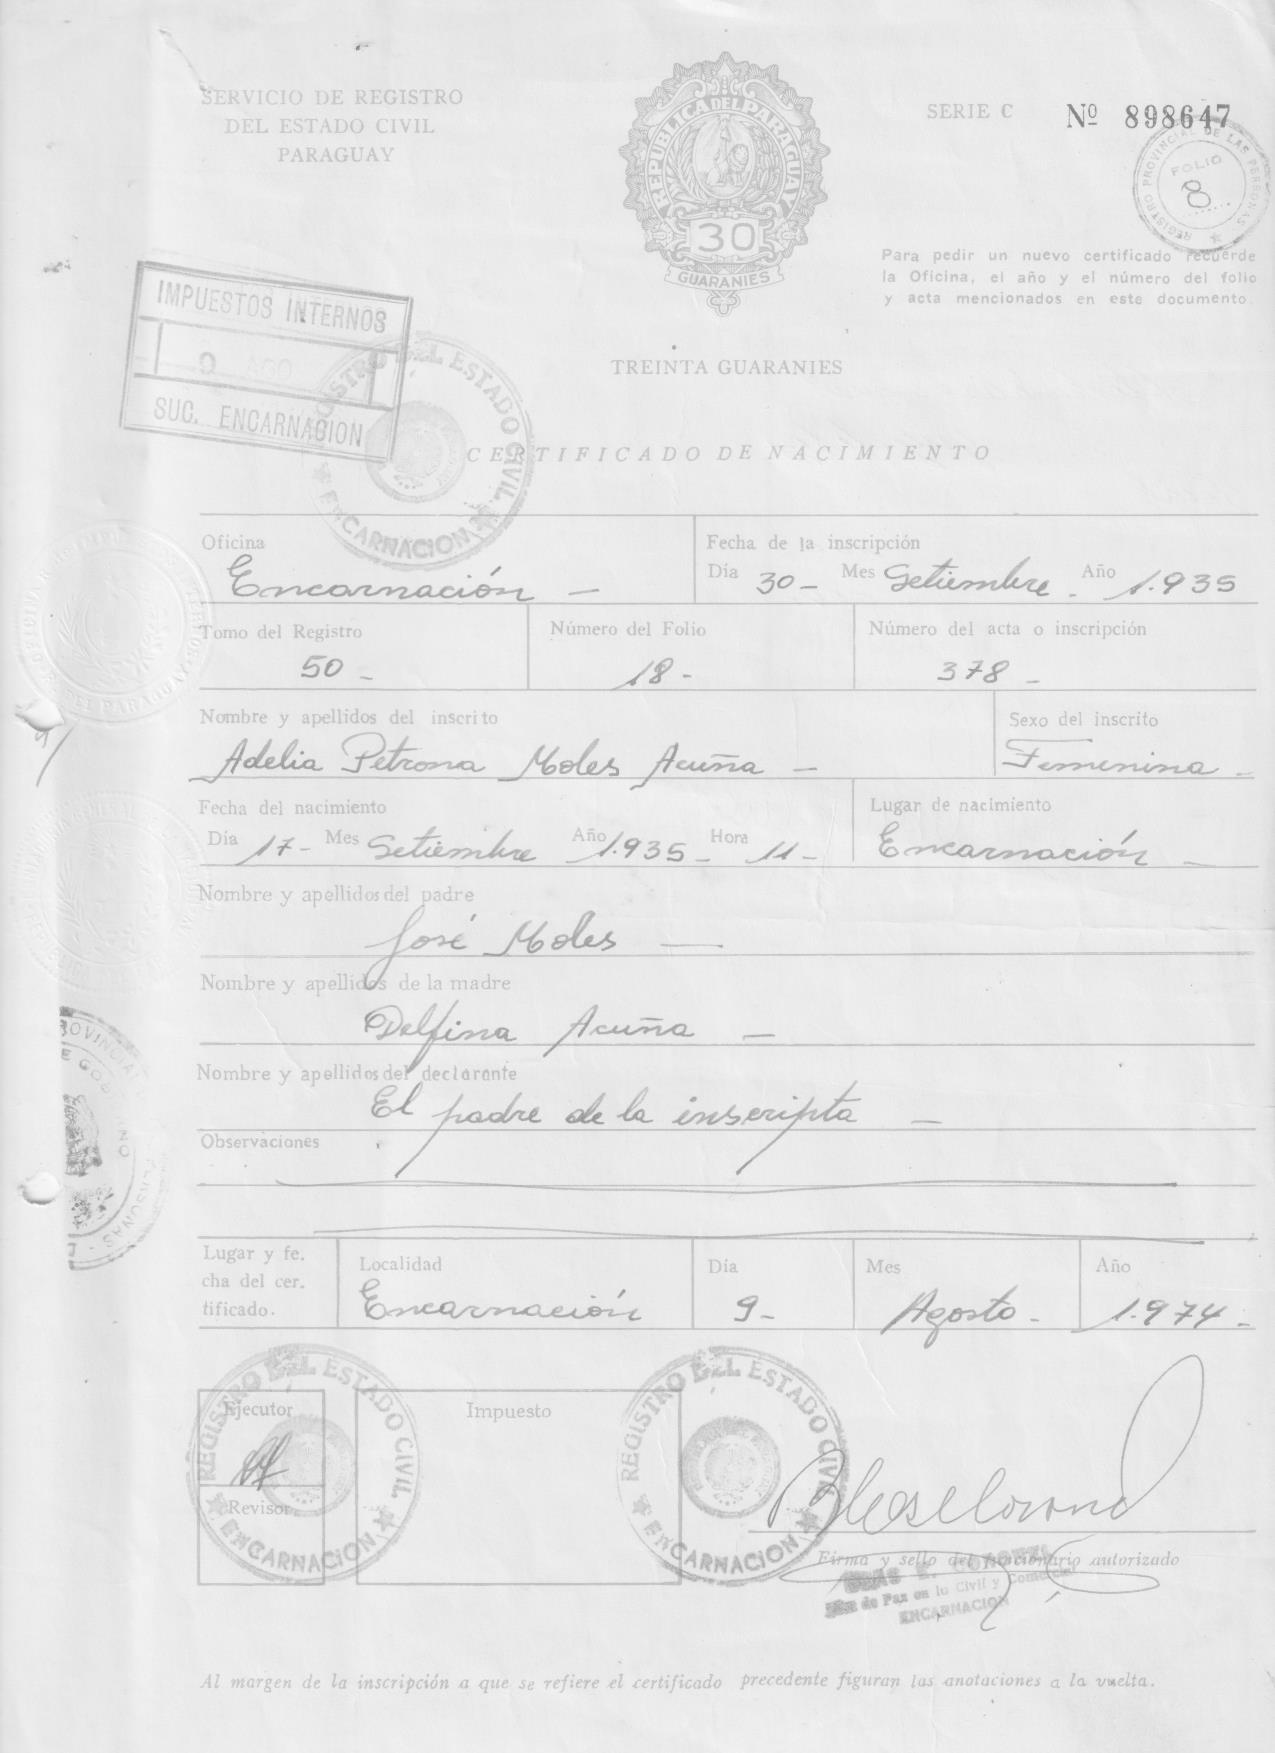 SERVICIO DE REGISTRO
DEL ESTADO CIVIL
PARAGUAY
REPUBLICA DEL PARAGUAY
30
GUARANIES
SERIE C Nº 898647
REGISTRO PROVINCIAL DE LAS PERSONAS
FOLIO
8
Para pedir un nuevo certificado recuerde
la Oficina, el año y el número del folio
y acta mencionados en este documento.
IMPUESTOS INTERNOS
9 AGO
SUC. ENCARNACION
REGISTRO DEL ESTADO CIVIL
ENCARNACION
TREINTA GUARANIES
CERTIFICADO DE NACIMIENTO
Oficina
Encarnación -
Fecha de la inscripción
Día 30- Mes Setiembre - Año 1.935
Tomo del Registro
50 -
Número del Folio
18 -
Número del acta o inscripción
378 -
Nombre y apellidos del inscrito
Adelia Petrona Moles Acuña -
Sexo del inscrito
Femenina -
Fecha del nacimiento
Día 17- Mes Setiembre Año 1.935 - Hora 11 -
Lugar de nacimiento
Encarnación -
Nombre y apellidos del padre
José Moles -
Nombre y apellidos de la madre
Delfina Acuña -
Nombre y apellidos del declarante
El padre de la inscripta -
Observaciones
Lugar y fe.
cha del cer.
tificado.
Localidad
Encarnación
Día
9-
Mes
Agosto -
Año
1.974 -
REGISTRO DEL ESTADO CIVIL
ENCARNACION
Ejecutor
Revisor
Impuesto
REGISTRO DEL ESTADO CIVIL
ENCARNACION
Firma y sello del funcionario autorizado
Juez de Paz en lo Civil y Comercial
ENCARNACION
Al margen de la inscripción a que se refiere el certificado precedente figuran las anotaciones a la vuelta.